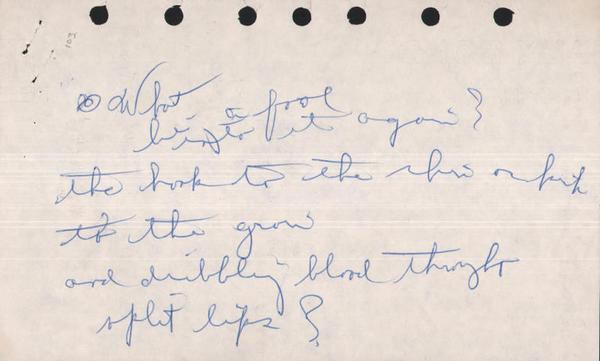 What a fool
it again?
the hook to the shin or kick
to the groin
and dribbling blood through
split lips?